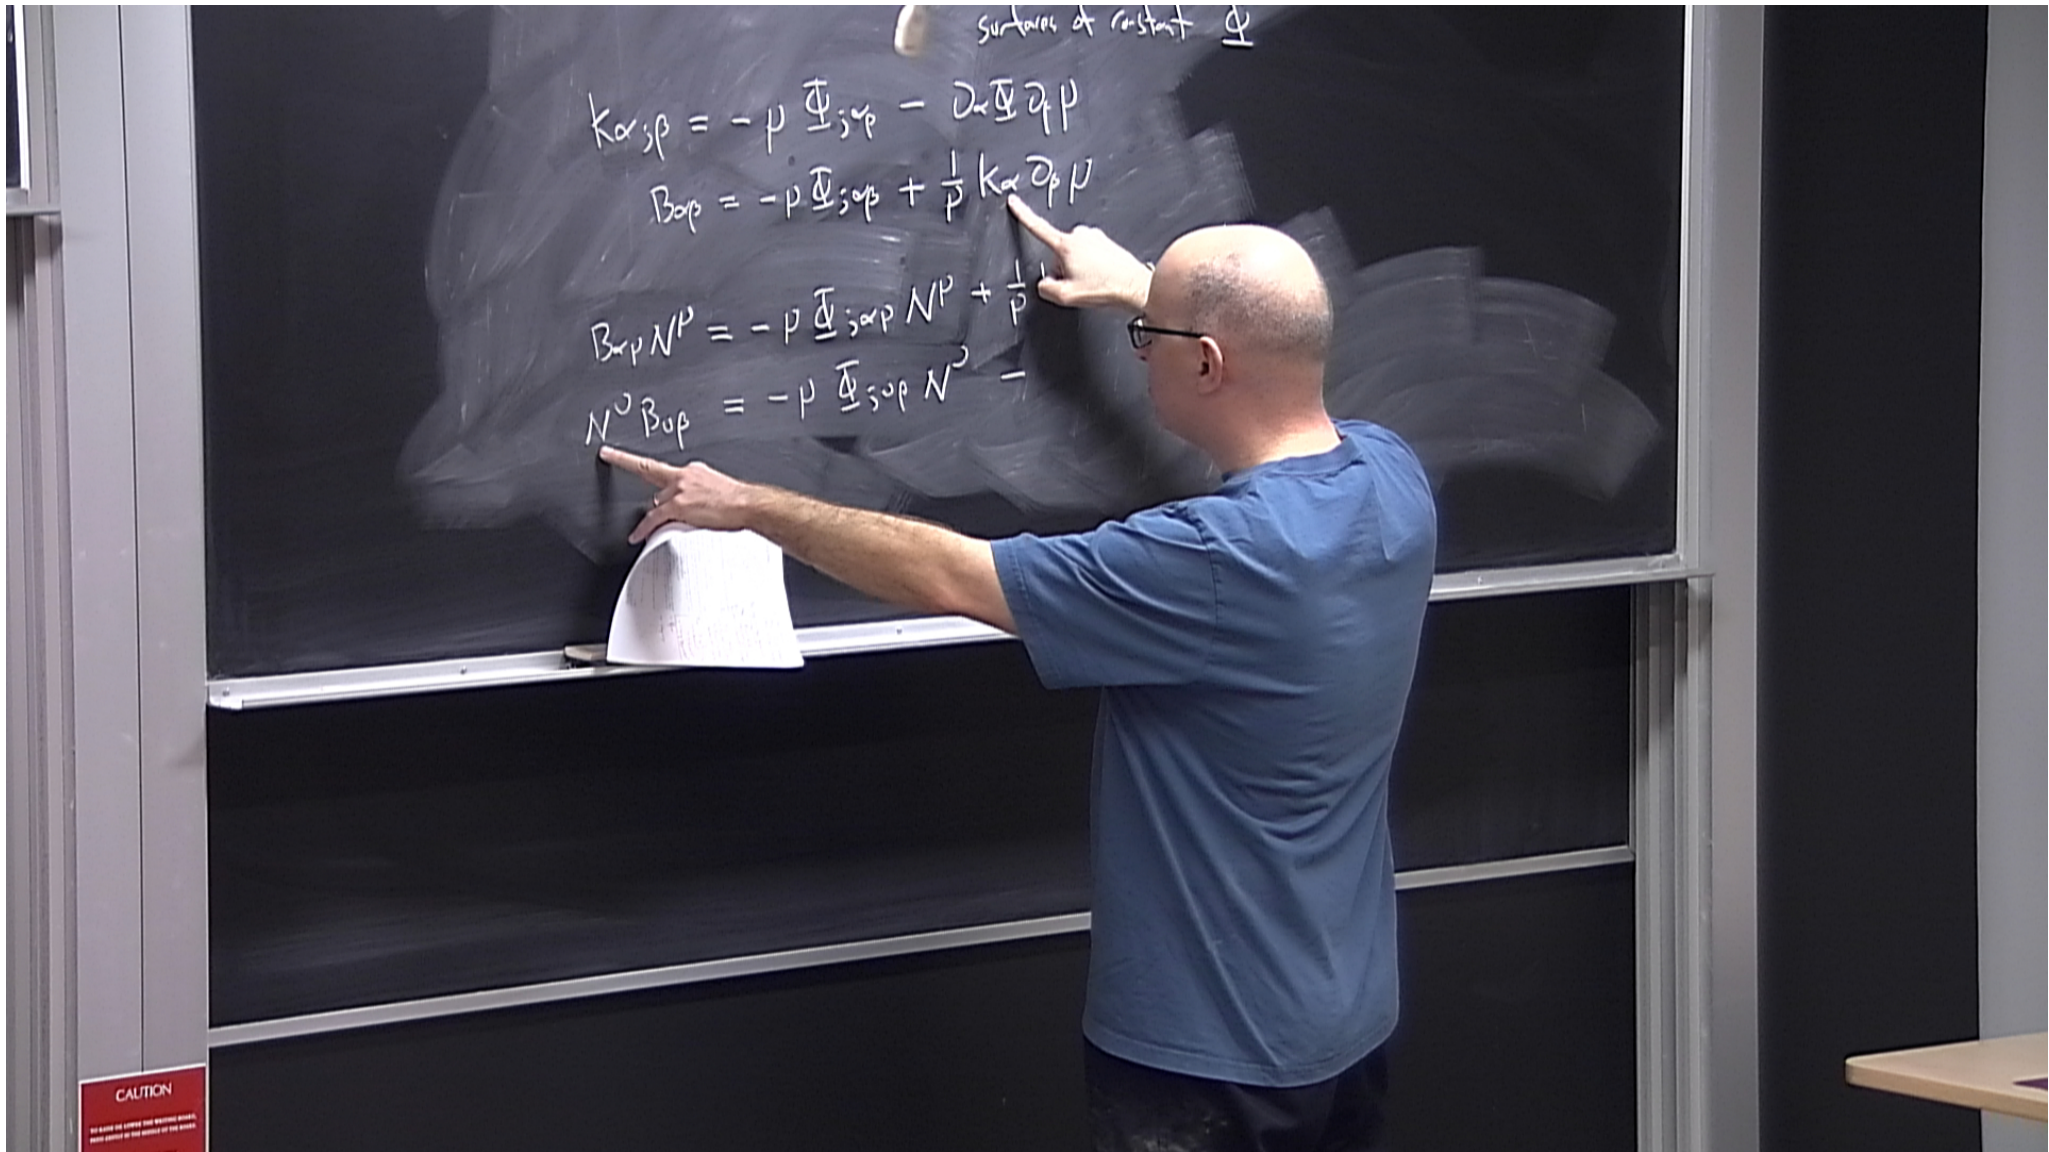 surfaces of constant Φ
kα;β = -μ Φ;αβ - ∂αΦ ∂βμ
Bαβ = -μ Φ;αβ + 1/μ kα ∂βμ
BαμN^μ = -μ Φ;αμ N^μ + 1/μ
N^ν Bνβ = -μ Φ;νβ N^ν -
CAUTION